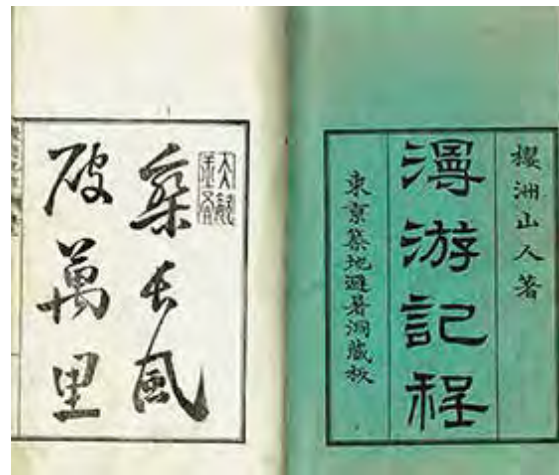 櫻洲山人著
漫游記程
東京築地避暑洞藏板
乘長風
破萬里